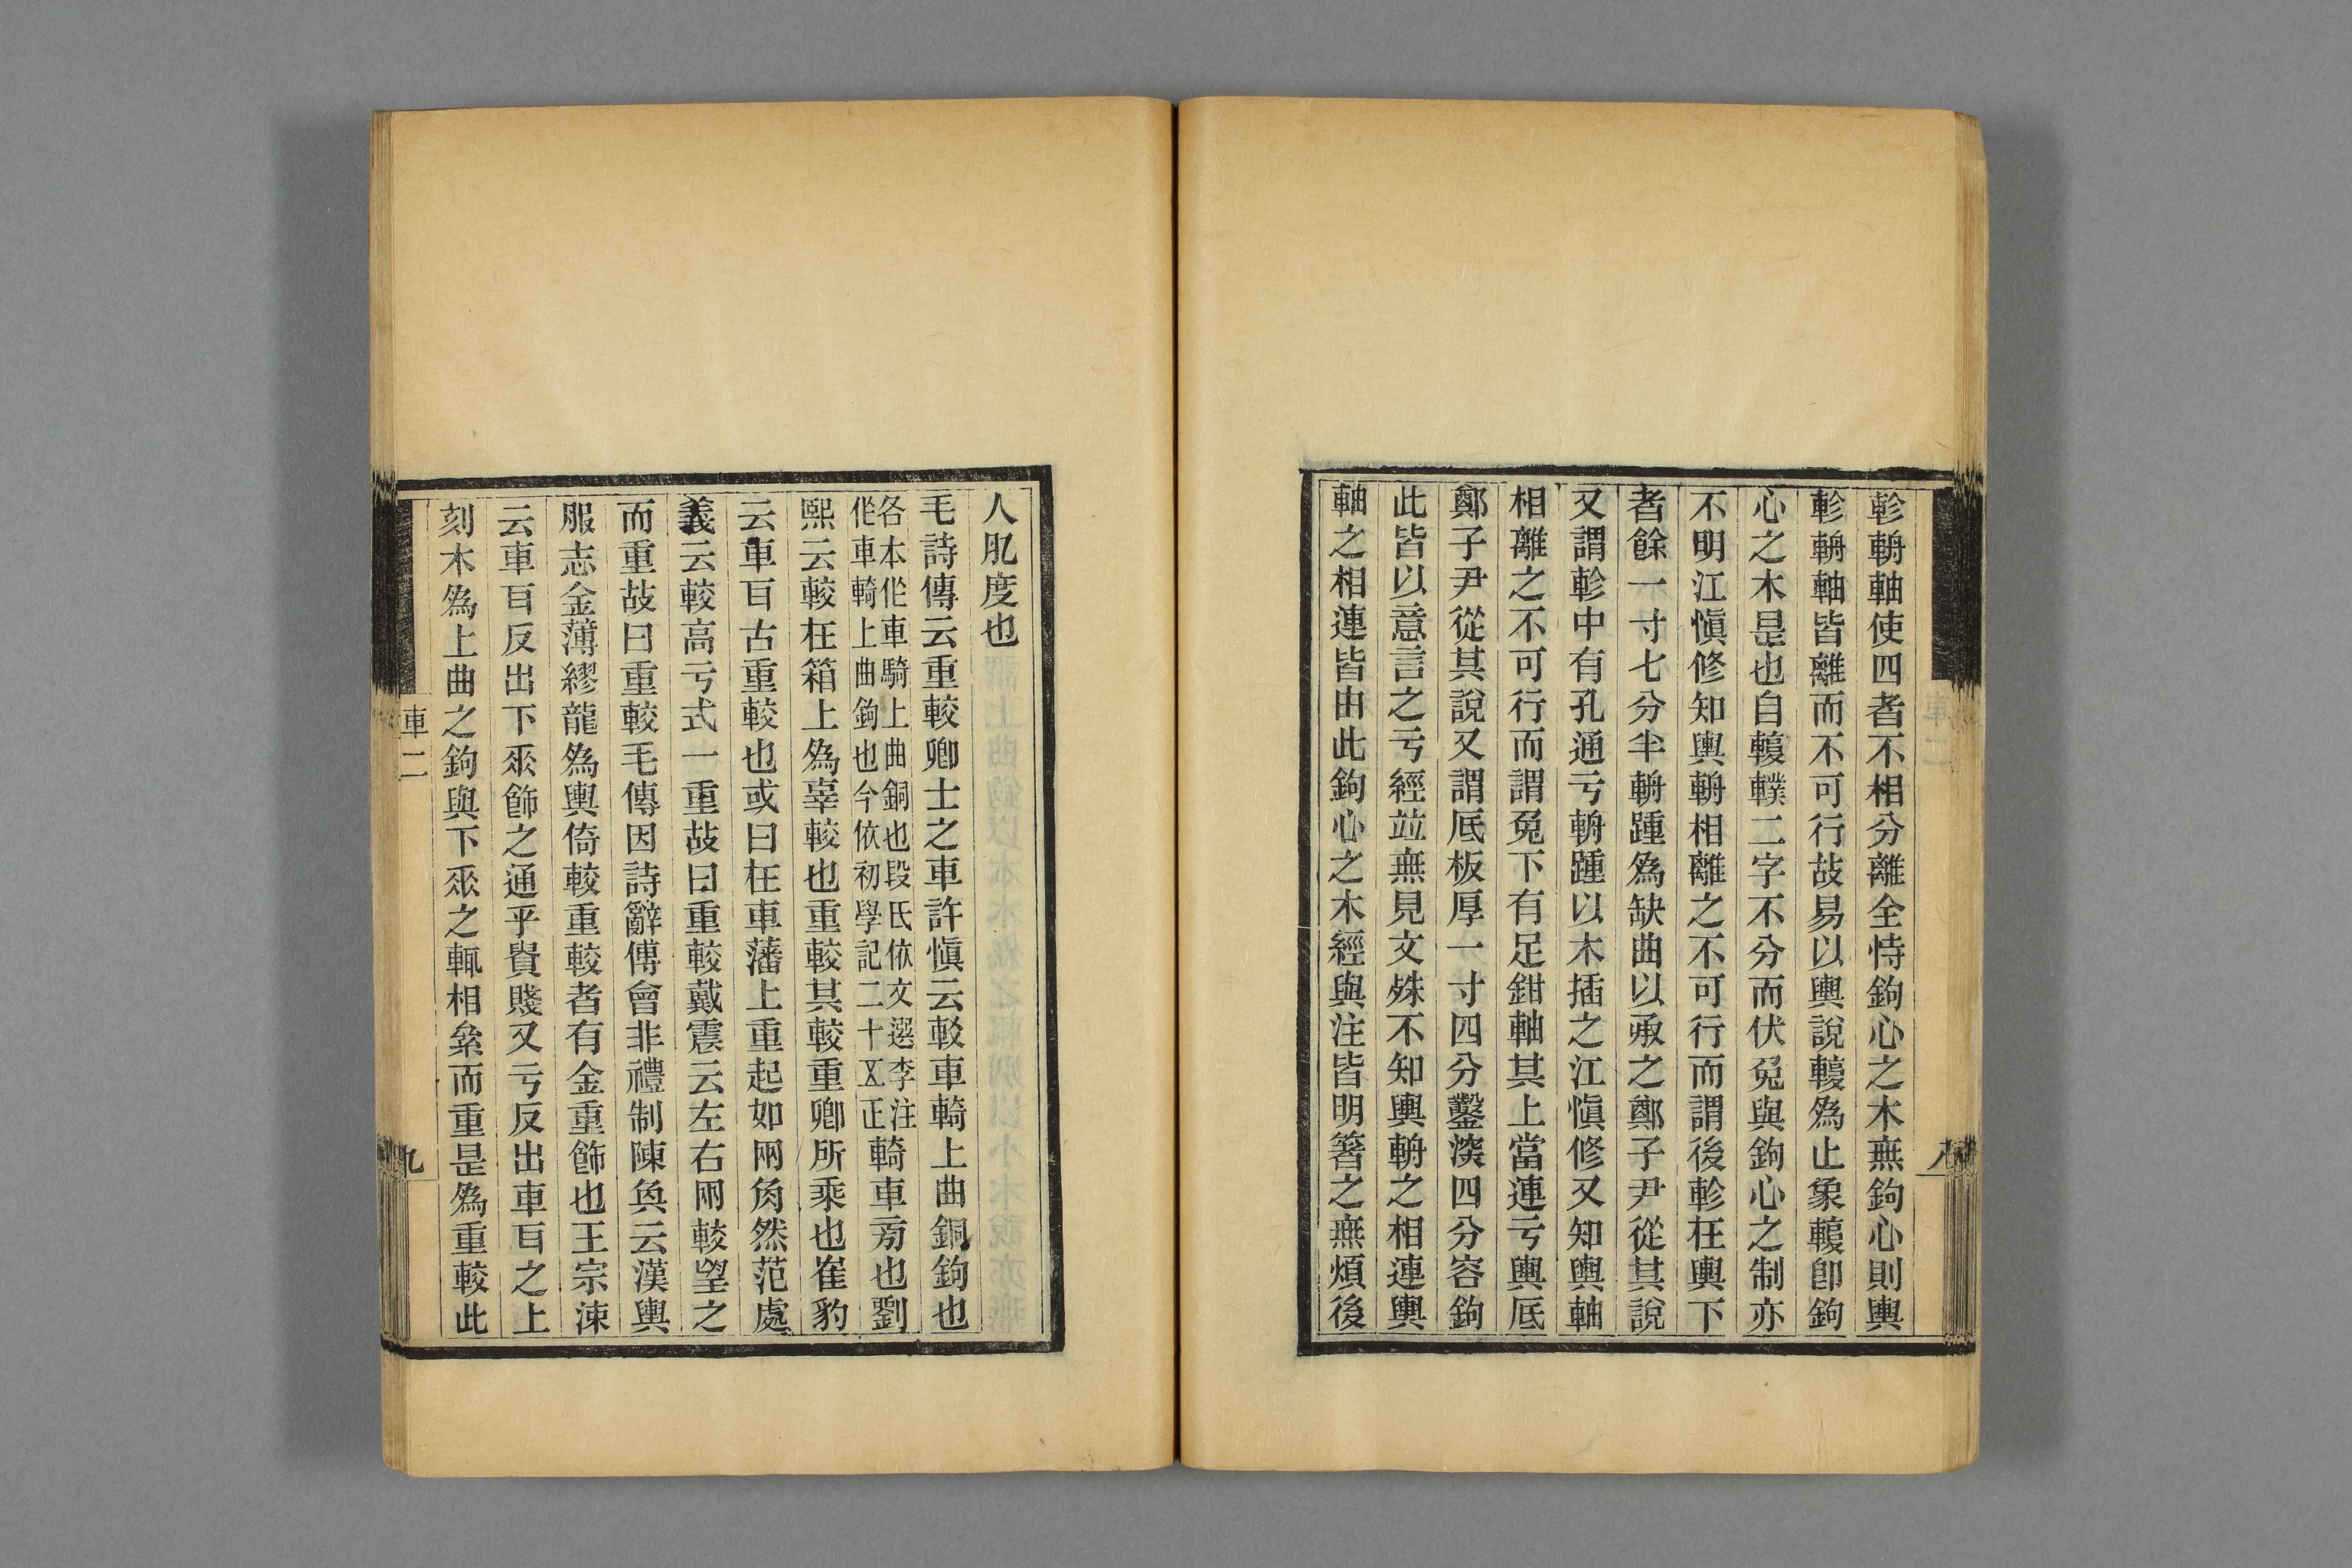 軫輈軸使四者不相分離全恃鉤心之木無鉤心則輿
軫輈軸皆離而不可行故易以輿說輹爲止象輹卽鉤
心之木是也自輹轐二字不分而伏兔與鉤心之制亦
不明江愼修知輿輈相離之不可行而謂後軫在輿下
者餘一寸七分半輈踵爲缺曲以承之鄭子尹從其說
又謂軫中有孔通亏輈踵以木插之江愼修又知輿軸
相離之不可行而謂兔下有足鉗軸其上當連亏輿底
鄭子尹從其說又謂底板厚一寸四分鑿深四分容鉤
此皆以意言之亏經竝無見文殊不知輿輈之相連輿
軸之相連皆由此鉤心之木經與注皆明箸之無煩後
八
人肊度也
毛詩傳云重較卿士之車許愼云較車輢上曲銅鉤也
各本作車騎上曲銅也段氏依文選李注
作車輢上曲鉤也今依初學記二十五正
輢車旁也劉
熙云較在箱上爲辜較也重較其較重卿所乘也崔豹
云車耳古重較也或曰在車藩上重起如兩角然范處
義云較高亏式一重故曰重較戴震云左右兩較望之
而重故曰重較毛傳因詩辭傅會非禮制陳奐云漢輿
服志金薄繆龍爲輿倚較重較者有金重飾也王宗涑
云車耳反出下垂飾之通乎貴賤又亏反出車耳之上
刻木爲上曲之鉤與下垂之輒相絫而重是爲重較此
車二
九